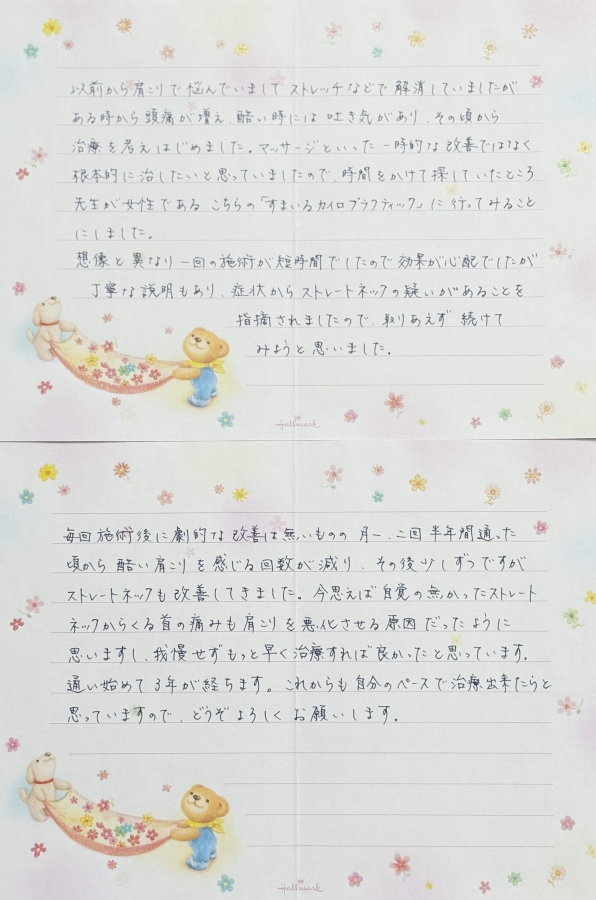 以前から肩こりで悩んでいまして ストレッチなどで解消していましたが
ある時から頭痛が増え、酷い時には吐き気があり、その頃から
治療を考えはじめました。マッサージといった一時的な改善ではなく
根本的に治したいと思っていましたので、時間をかけて探していたところ
先生が女性である こちらの「すまいるカイロプラクティック」に行ってみること
にしました。
想像と異なり一回の施術が短時間でしたので効果が心配でしたが
丁寧な説明もあり、症状からストレートネックの疑いがあることを
指摘されましたので、取りあえず続けて
みようと思いました。
Hallmark
毎回施術後に劇的な改善は無いものの 月一、二回半年間通った
頃から 酷い肩こりを感じる回数が減り、その後少しずつですが
ストレートネックも改善してきました。今思えば自覚の無かったストレート
ネックからくる首の痛みも肩こりを悪化させる原因だったように
思いますし、我慢せずもっと早く治療すれば良かったと思っています。
通い始めて3年が経ちます。これからも自分のペースで治療出来たらと
思っていますので、どうぞよろしくお願いします。
Hallmark